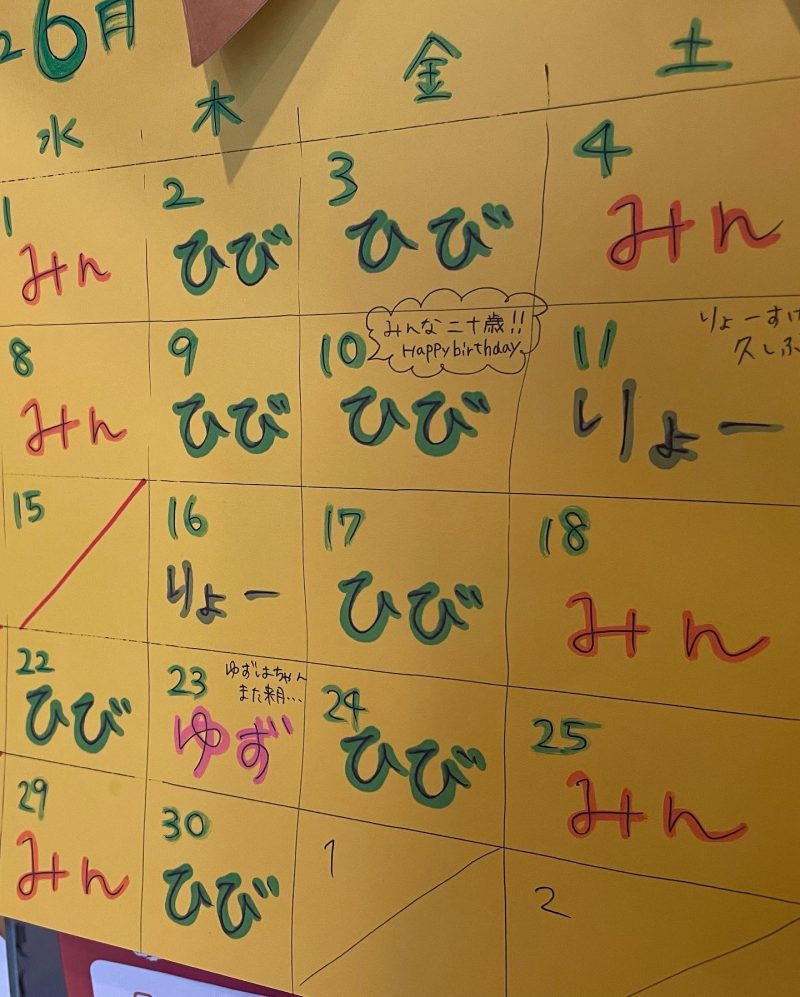 6月
水 木 金 土
1 2 3 4
みん ひび ひび みん
8 9 10 11
みんな二十歳!!
Happy birthday
りょーすけ
久しぶ
みん ひび ひび りょー
15 16 17 18
りょー ひび みん
22 23 24 25
ゆずはちゃん
また来月...
ひび ゆず ひび みん
29 30 1 2
みん ひび